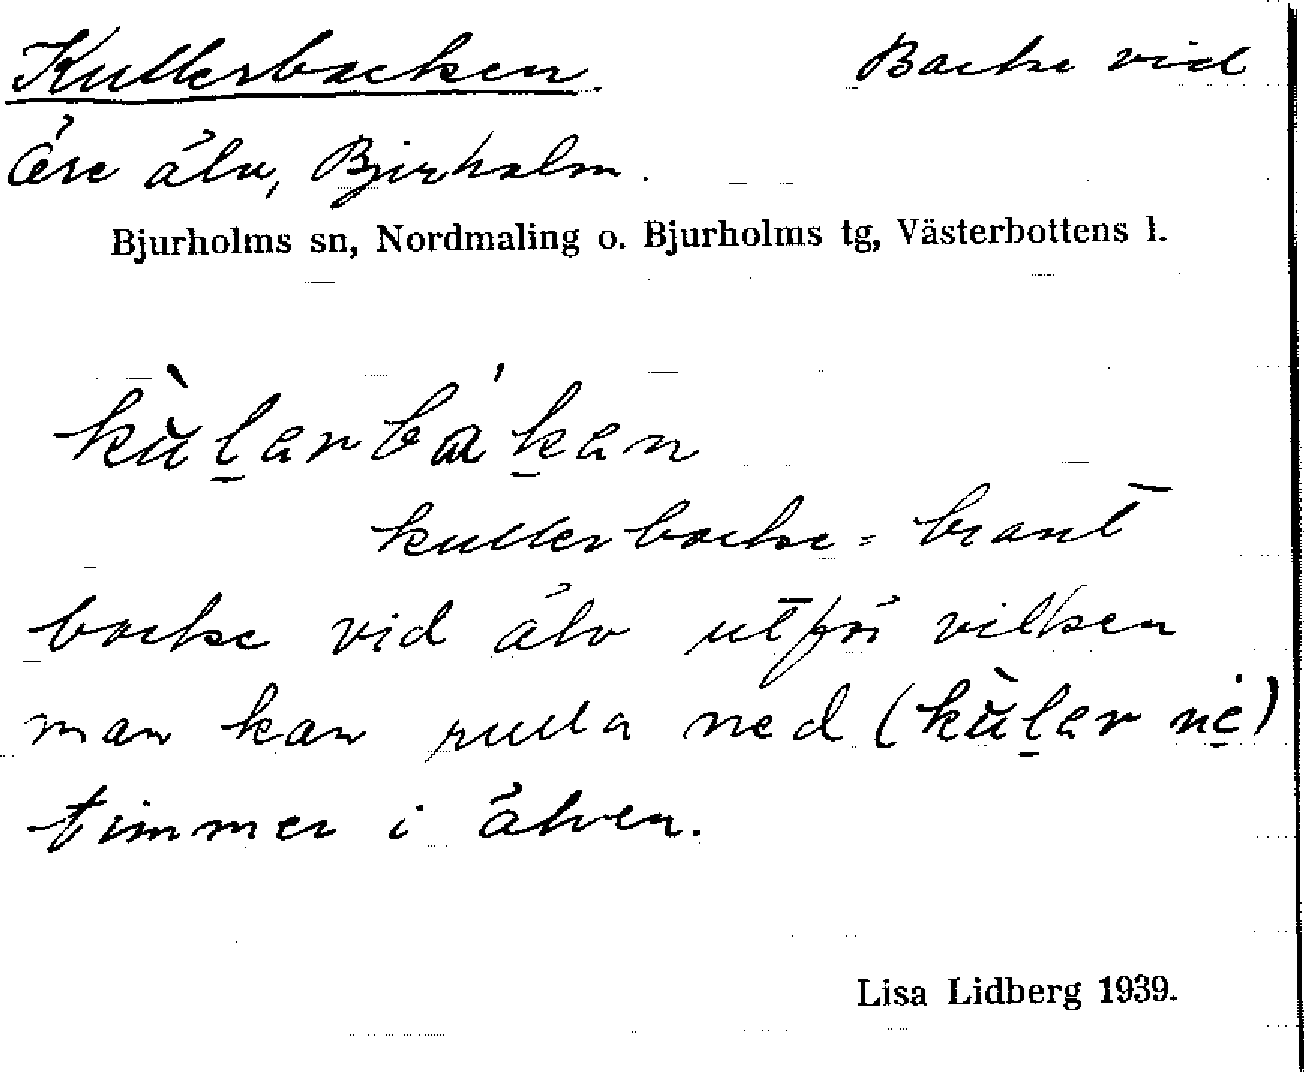 Kullerbacken. Backe vid
Öre älv, Bjurholm.
Bjurholms sn, Nordmaling o. Bjurholms tg, Västerbottens l.
kùl̠arbákַ̠an
kullerbacke = brant
backe vid älv utför vilken
man kan rulla ned (kùl̠ar nė)
timmer i älven.
Lisa Lidberg 1939.